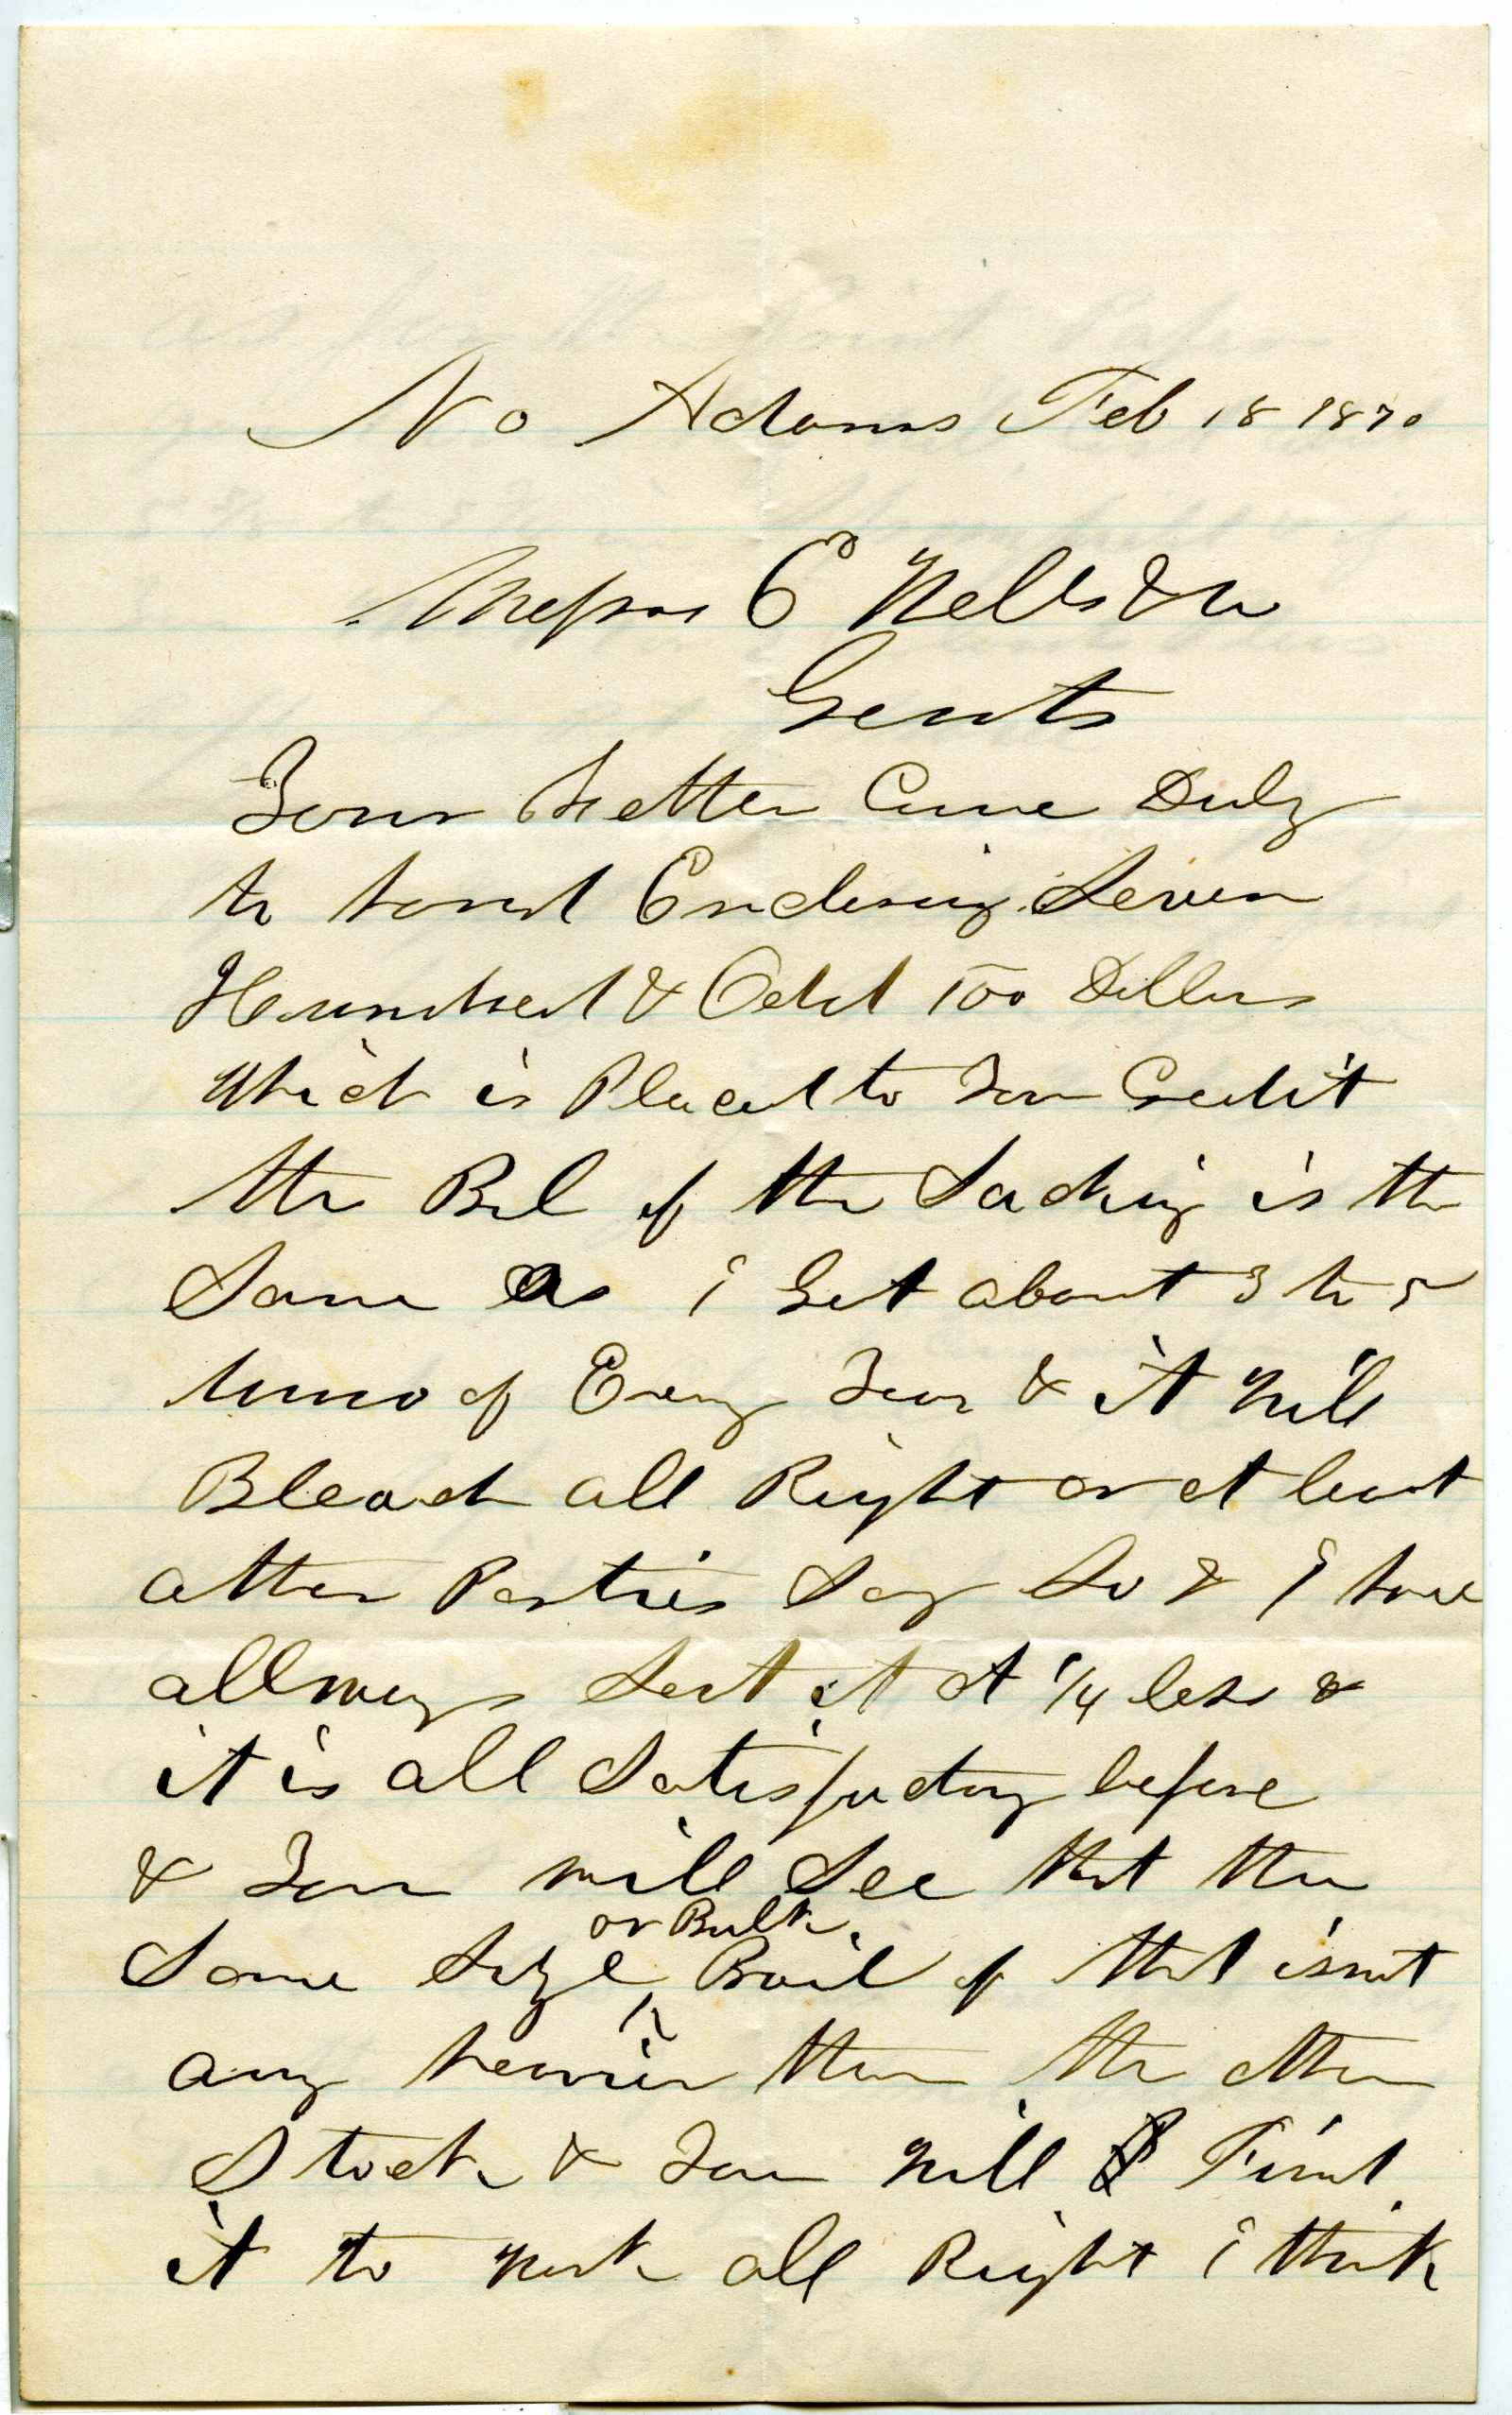 No Adams Feb 18 1870
Messrs C Wells & Co
Gents
Your Letter Came Duly
to hand Enclosing Seven
Hundred & Odd 100 Dollars
Which is Placed to Your Credit
the Bal of the Sacking is the
Same as i Get about 3 to 5
tuns of Every Year & it Will
Bleach all Right or at least
other Parties Say So & I have
allways Sent it at 1/4 less &
it is all Satisfactory before
& You will See that the
or Bulk
Same Size Bail of that isnt
any hevier than the other
Stock & You Will Find
it to work all Right i think